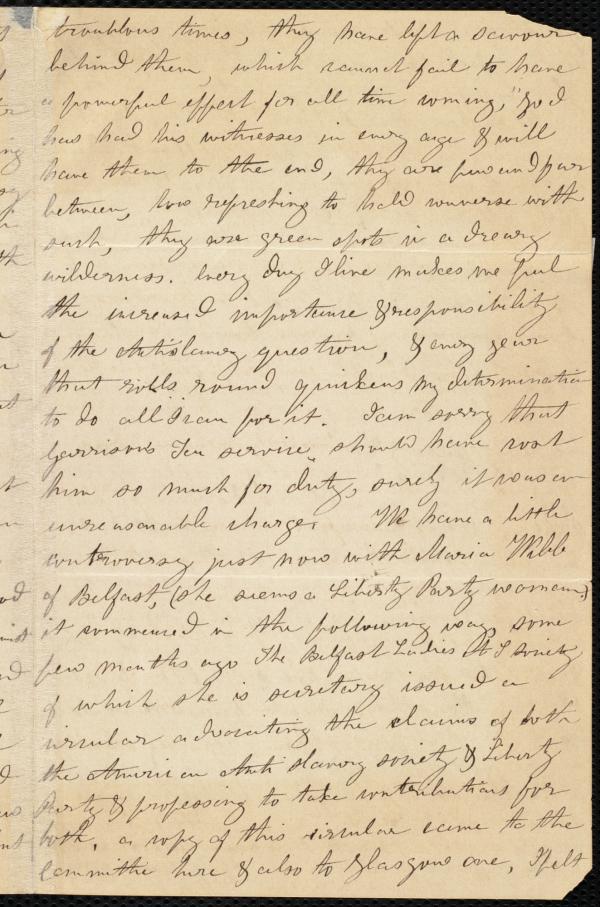 troublous times, they have left a savour
behind them, which cannot fail to have
a powerful effect for all time coming, "God
has had his witnesses in every age & will
have them to the end, they are few and far
between, how refreshing to hold converse with
such, they are green spots in a dreary
wilderness. Every day I live makes me feel
the increased importance & responsibility
of the Antislavery question, & every year
that rolls round quickens my determination
to do all I can for it. I am sorry that
Garrisons Tea service, should have cost
him so much for duty, surely it was an
unreasonable charge. We have a little
controversy just now with Maria Webb
of Belfast, (she seems a Liberty Party woman,)
it commenced in the following way, some
few months ago The Belfast Ladies A S Society
of which she is secretary issued a
circular advocating the claims of both
the American Anti Slavery society & Liberty
Party & professing to take contributions for
both, a copy of this circular came to the
Committee here & also to Glasgow one, I felt